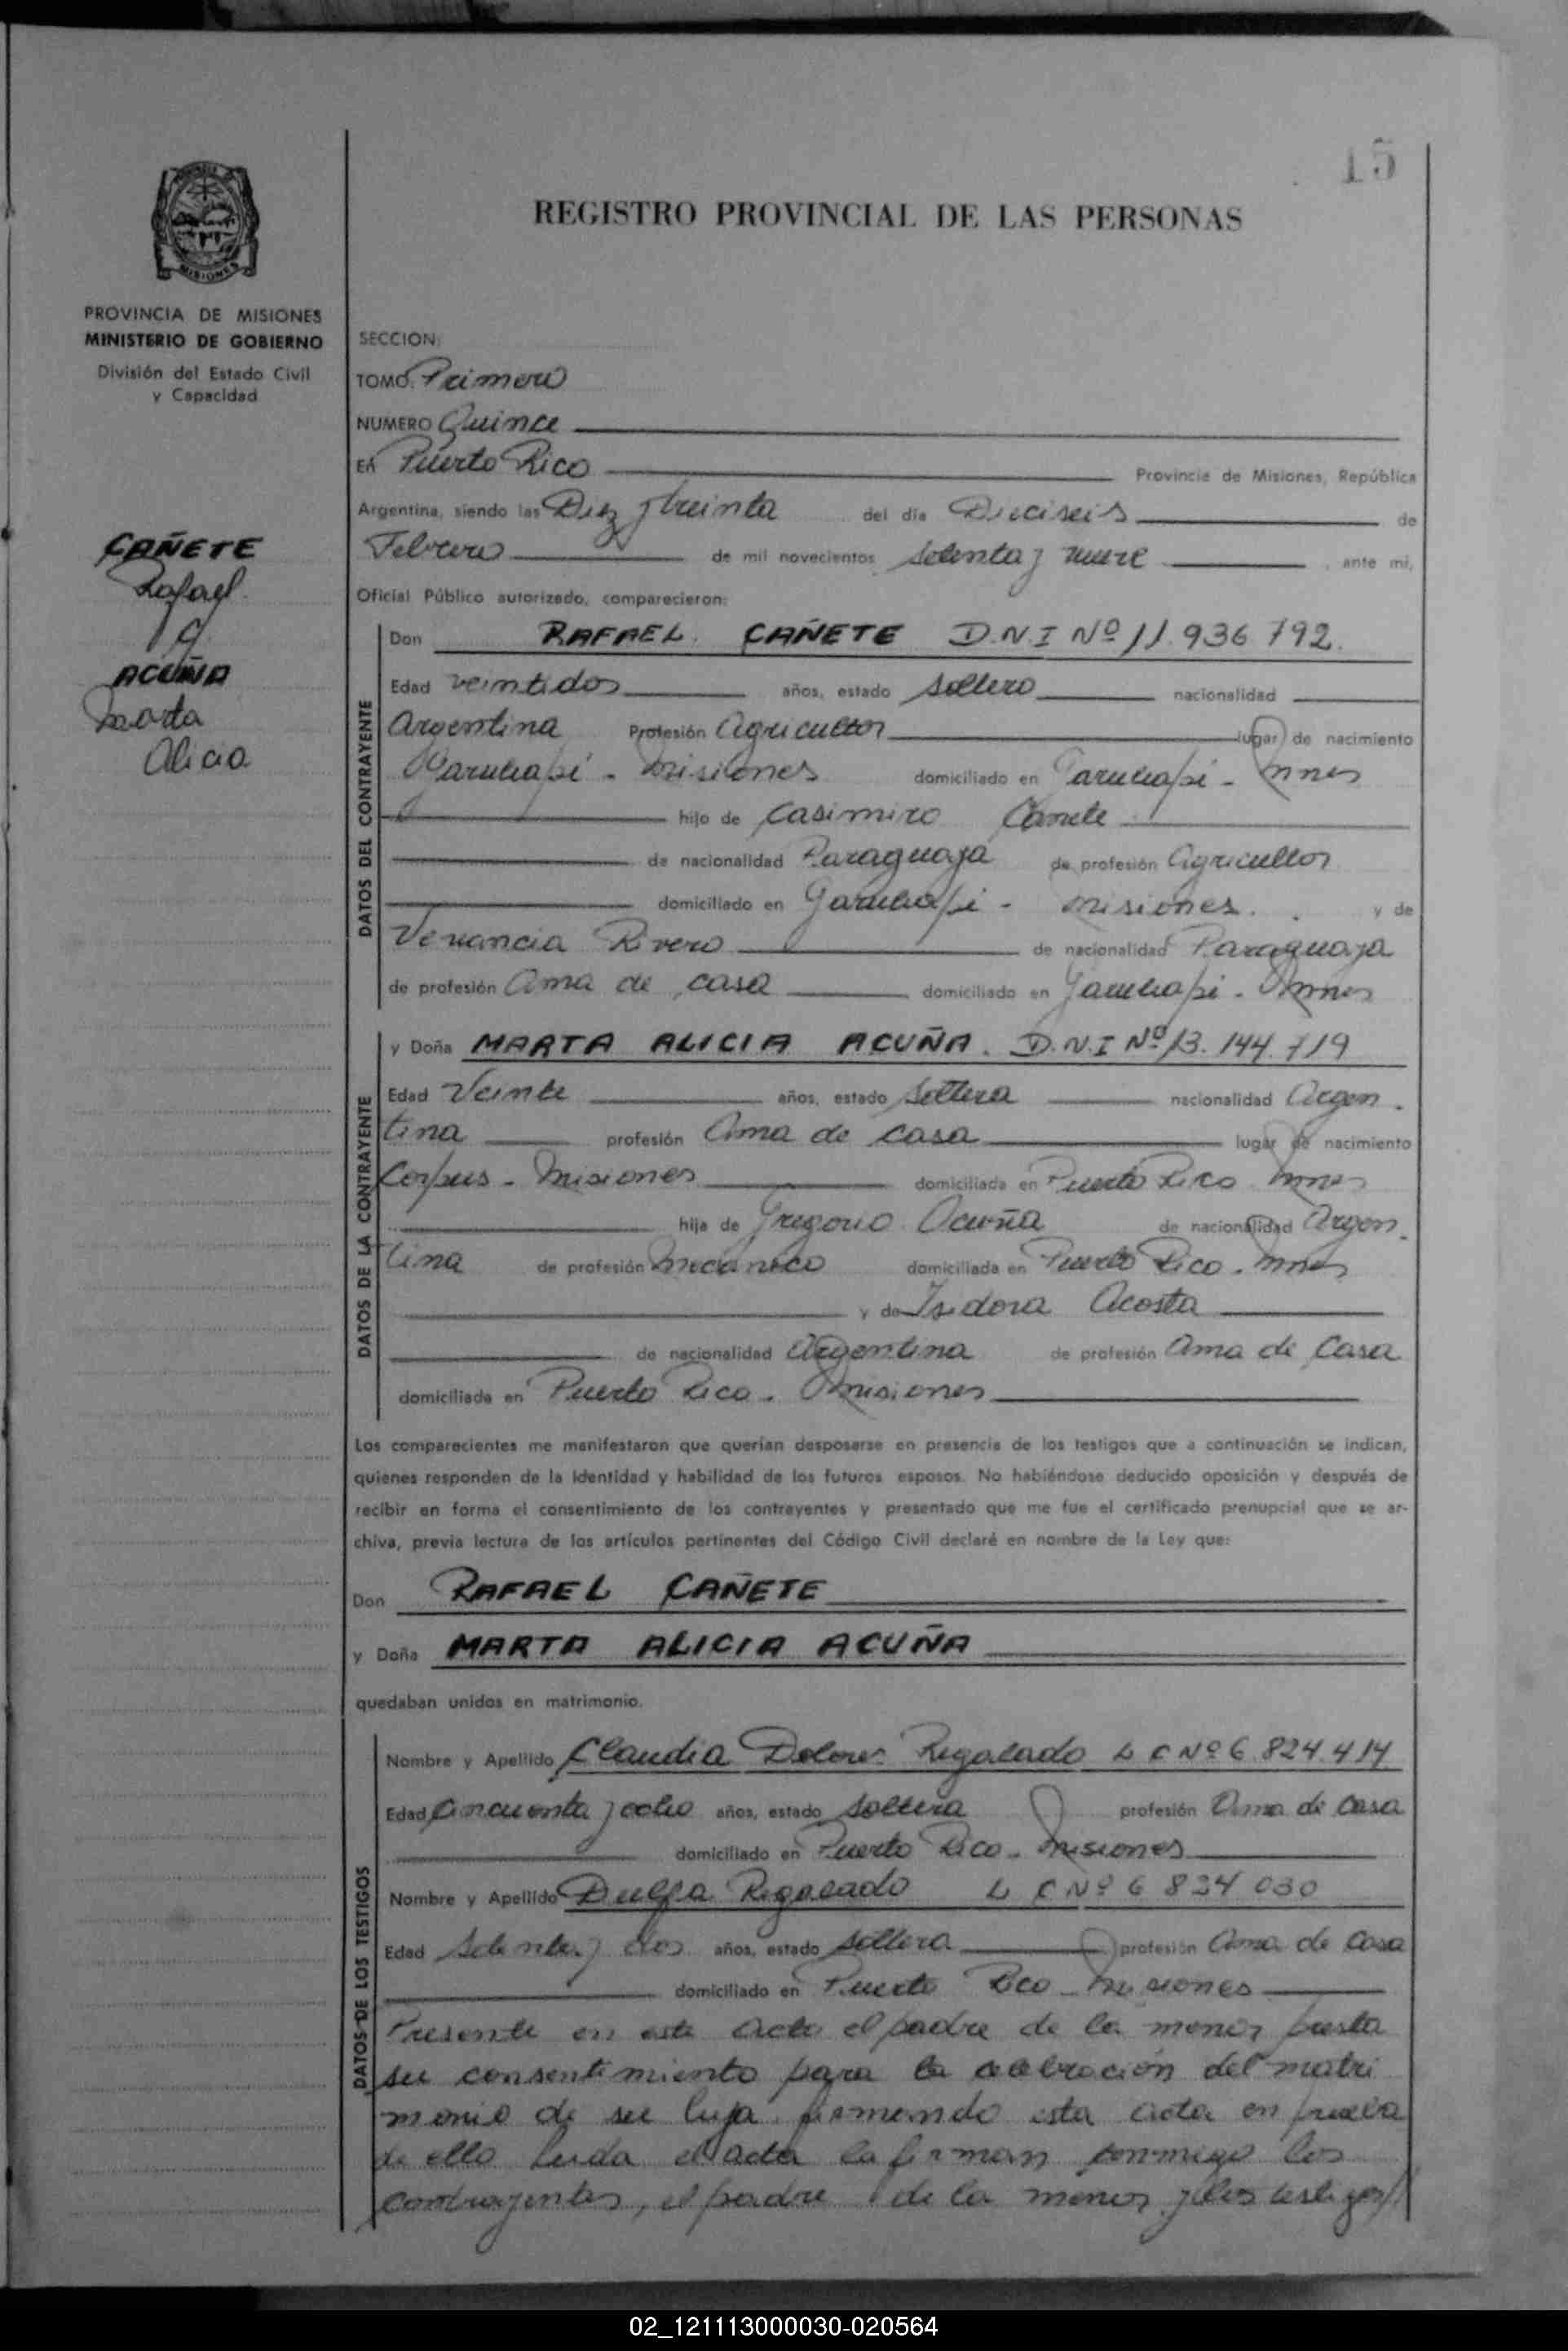 15
REGISTRO PROVINCIAL DE LAS PERSONAS
MISIONES
PROVINCIA DE MISIONES
MINISTERIO DE GOBIERNO
División del Estado Civil
y Capacidad
CAÑETE
Rafael
y
ACUÑA
Marta
Alicia
SECCION:
TOMO: Primero
NUMERO Quince
En Puerto Rico Provincia de Misiones, República
Argentina, siendo las Diez y treinta del día Dieciseis de
Febrero de mil novecientos setenta y nueve, ante mi,
Oficial Público autorizado, comparecieron:
DATOS DEL CONTRAYENTE
Don RAFAEL CAÑETE D.N.I Nº 11.936.792.
Edad veintidos años, estado soltero nacionalidad
Argentina Profesión Agricultor lugar de nacimiento
Garuhapé - Misiones domiciliado en Garuhapé - Mnes
hijo de Casimiro Cañete
de nacionalidad Paraguaya de profesión Agricultor
domiciliado en Garuhapé - Misiones. y de
Venancia Rivero de nacionalidad Paraguaya
de profesión Ama de casa domiciliado en Garuhapé - Mnes
DATOS DE LA CONTRAYENTE
y Doña MARTA ALICIA ACUÑA. D.N.I Nº 13.144.719
Edad Veinte años, estado Soltera nacionalidad Argen.
tina profesión Ama de casa lugar de nacimiento
Corpus - Misiones domiciliada en Puerto Rico Mnes
hija de Gregorio Acuña de nacionalidad Argen.
tina de profesión Mecánico domiciliada en Puerto Rico - Mnes
y de Isidora Acosta
de nacionalidad Argentina de profesión Ama de Casa
domiciliada en Puerto Rico - Misiones
Los comparecientes me manifestaron que querían desposarse en presencia de los testigos que a continuación se indican,
quienes responden de la identidad y habilidad de los futuros esposos. No habiéndose deducido oposición y después de
recibir en forma el consentimiento de los contrayentes y presentado que me fue el certificado prenupcial que se ar-
chiva, previa lectura de los artículos pertinentes del Código Civil declaré en nombre de la Ley que:
Don RAFAEL CAÑETE
y Doña MARTA ALICIA ACUÑA
quedaban unidos en matrimonio.
DATOS DE LOS TESTIGOS
Nombre y Apellido Claudia Dolores Regalado L C Nº 6.824.414
Edad Cincuenta y ocho años, estado soltera profesión Ama de Casa
domiciliado en Puerto Rico - Misiones
Nombre y Apellido Regalado L C Nº 6 824 030
Edad Setenta y dos años, estado soltera profesión Ama de Casa
domiciliado en Puerto Rico - Misiones
Presente en este acto el padre de la menor presta
su consentimiento para la celebración del matri
monio de su hija firmando esta acta en prueba
de ello Leida el acta la firman conmigo los
contrayentes, el padre de la menor y los testigos//
02_121113000030-020564